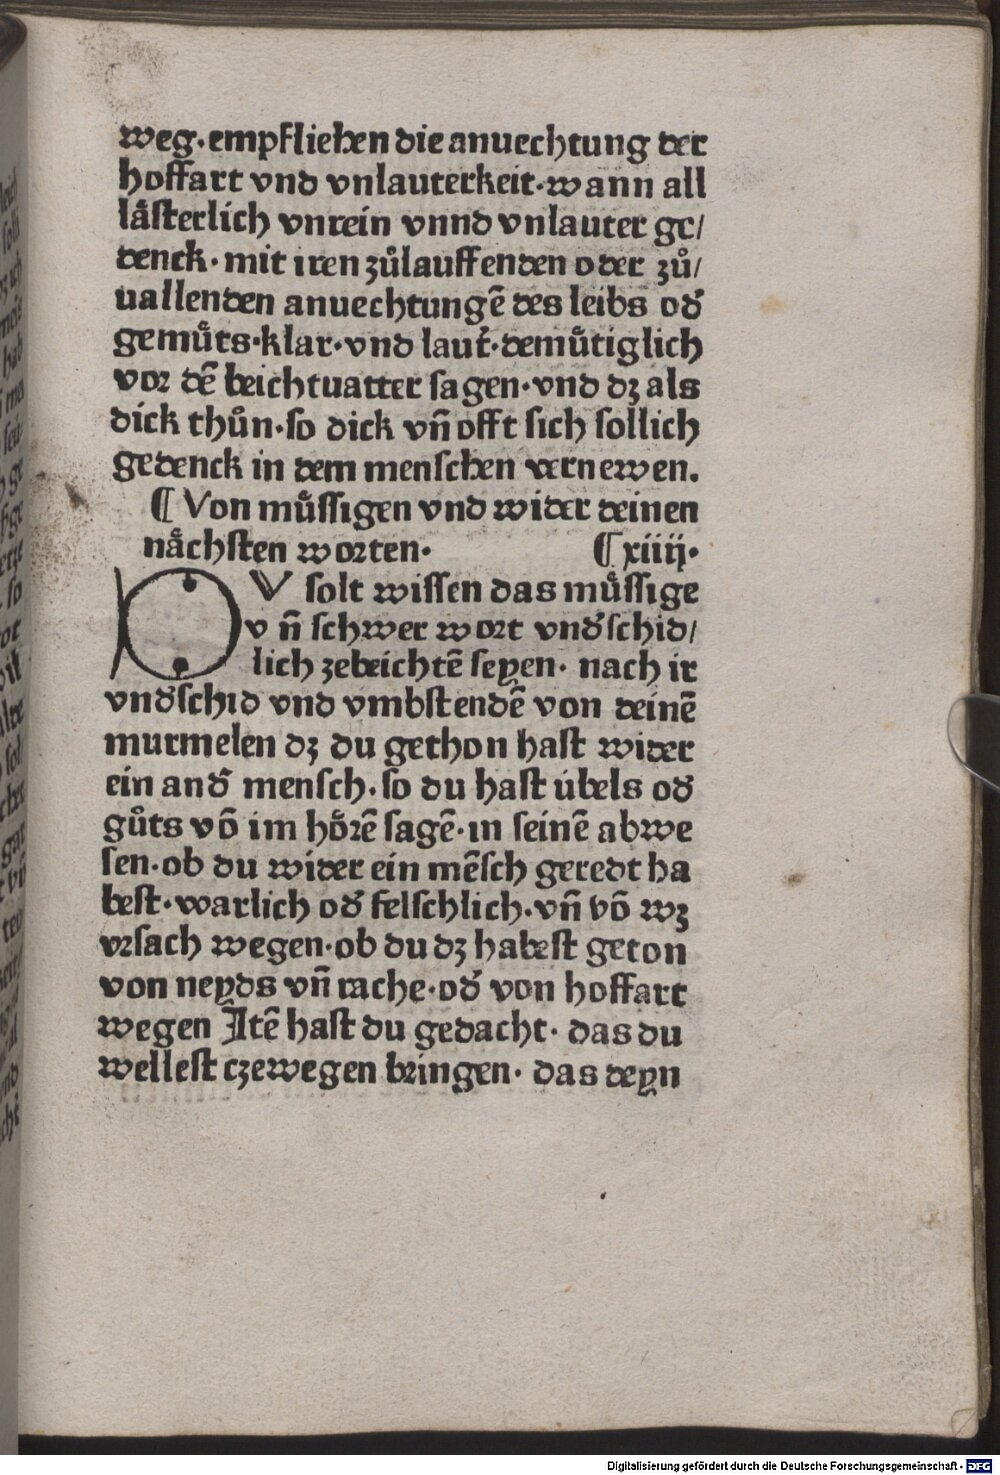 weg·empfliehen die anuechtung der
hoffart vnd vnlauterkeit·wann all
laͤsterlich vnrein vnnd vnlauter ge/
denck·mit iren zuͦlauffenden oder zuͦ/
uallenden anuechtungē des leibs od᷑
gemuͤts·klar·vnd laut᷑·demuͤtiglich
vor dē beichtuatter sagen·vnd dz als
dick thuͦn·so dick vn̄ offt sich sollich
gedenck in dem menschen vernewen.
¶ Von muͤssigen vnd wider deinen
naͤchsten worten· ¶ xiiij·
DV solt wissen das muͤssige
v n̄ schwer wort vnd᷑schid/
lich zebeichtē seyen· nach ir
vnd᷑schid vnd vmbstendē von deinē
murmelen dz du gethon hast wider
ein and᷑ mensch·so du hast úbels od᷑
guͦts vō im hoͤrē sagē·in seinē abwe
sen·ob du wider ein mēsch geredt ha
best·warlich od᷑ felschlich·vn̄ vō wz
vrsach wegen·ob du dz habest geton
von neyds vn̄ rache·od᷑ von hoffart
wegen Itē hast du gedacht· das du
wellest czewegen bringen· das deyn
Digitalisierung gefördert durch die Deutsche Forschungsgemeinschaft - DFG